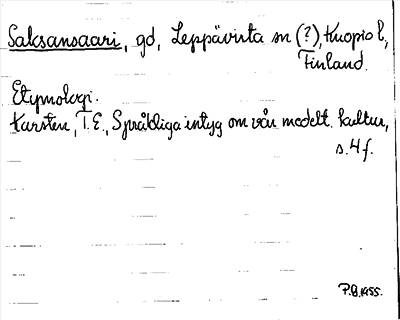 Saksansaari, gd, Leppävirta sn (?), Kuopio l,
Finland.
Etymologi.
Karsten, T.E., Språkliga intyg om vår medelt. kultur,
s. 4 f.
P.B. 1955.